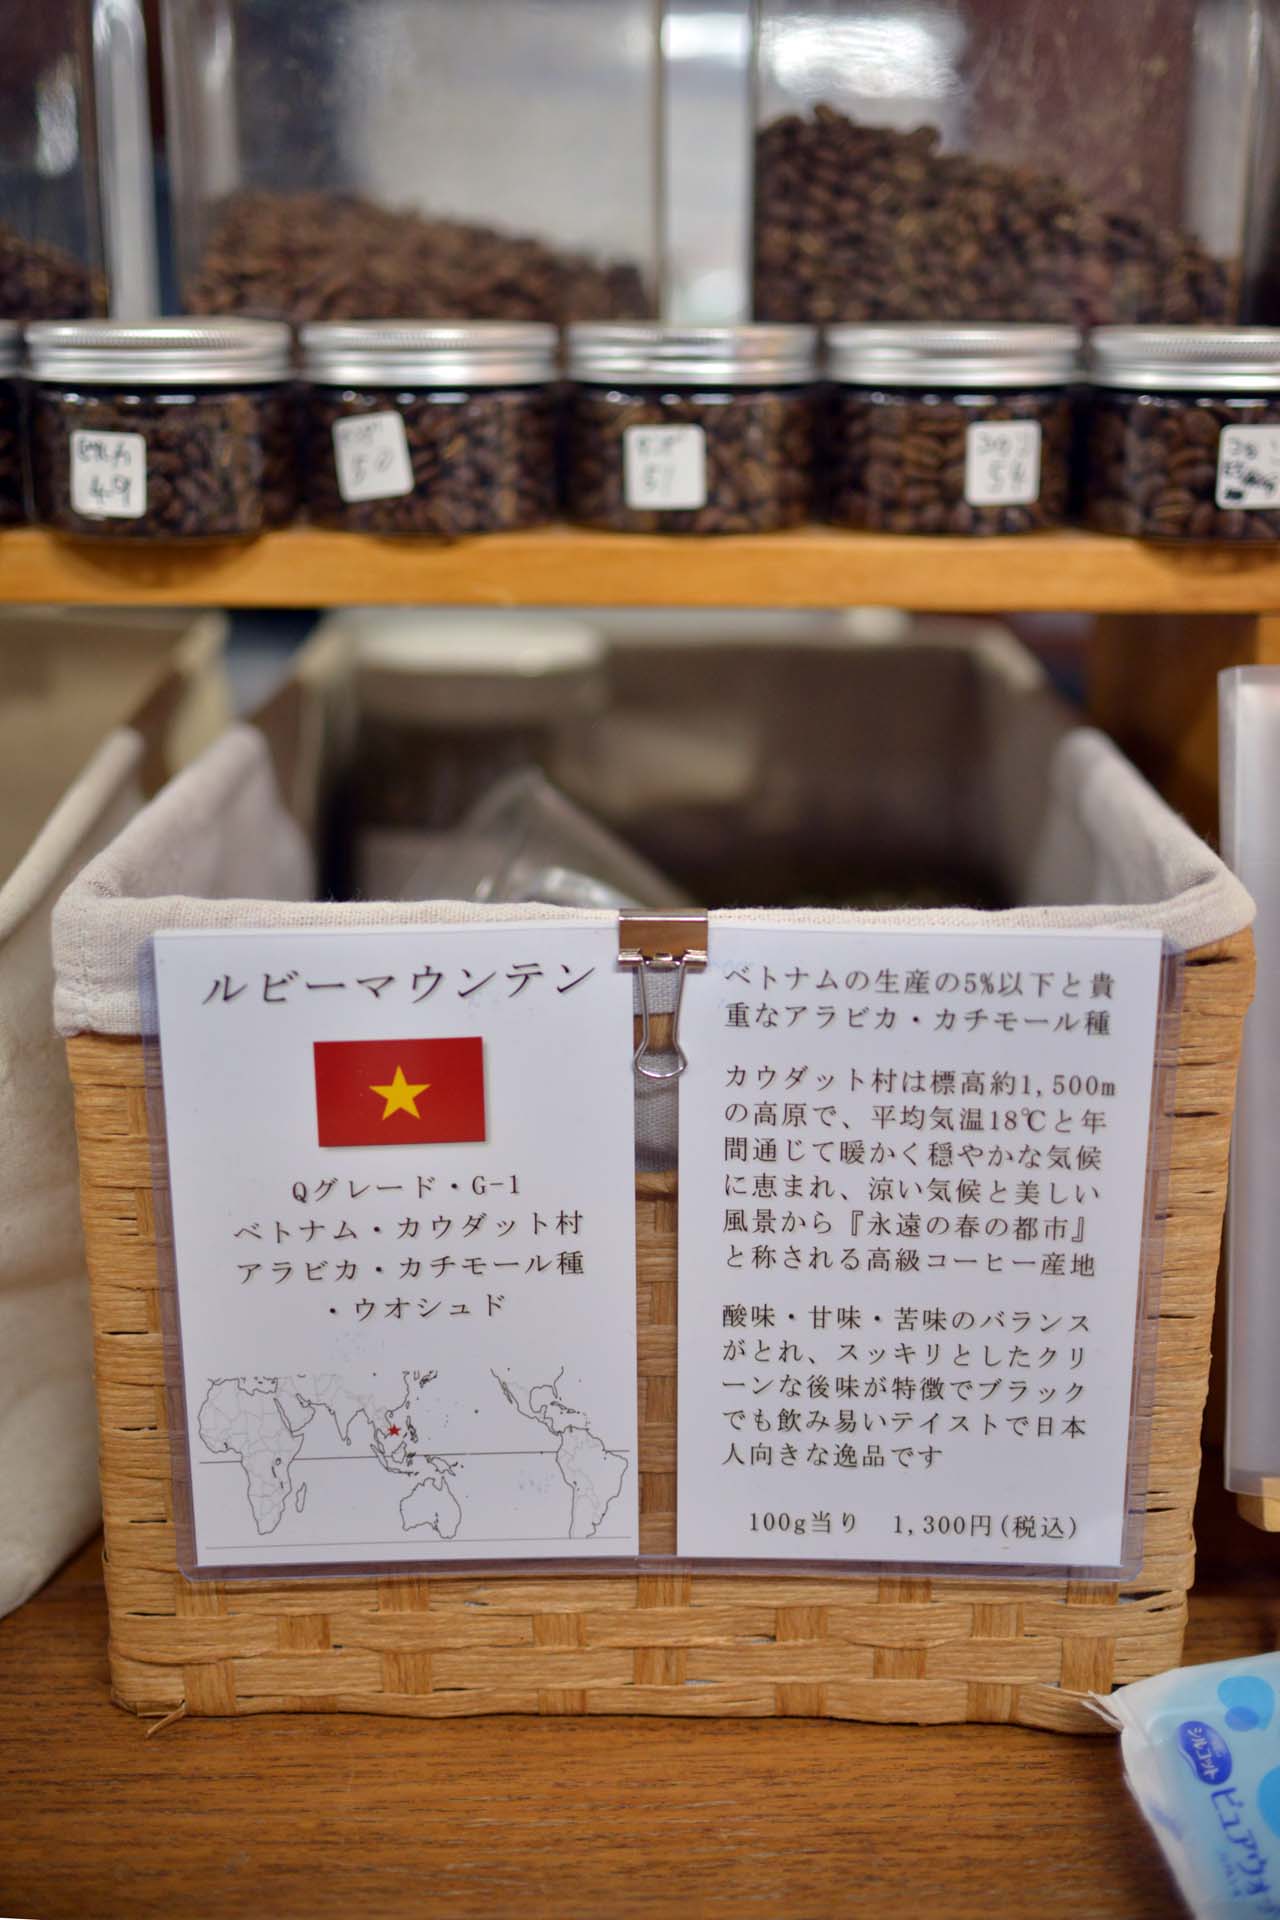 50
51
54
ルビーマウンテン
Qグレード・G-1
ベトナム・カウダット村
アラビカ・カチモール種
・ウオシュド
ベトナムの生産の5%以下と貴
重なアラビカ・カチモール種
カウダット村は標高約1,500m
の高原で、平均気温18℃と年
間通じて暖かく穏やかな気候
に恵まれ、涼い気候と美しい
風景から『永遠の春の都市』
と称される高級コーヒー産地
酸味・甘味・苦味のバランス
がとれ、スッキリとしたクリ
ーンな後味が特徴でブラック
でも飲み易いテイストで日本
人向きな逸品です
100g当り 1,300円(税込)
シルコット
ピュアウォ